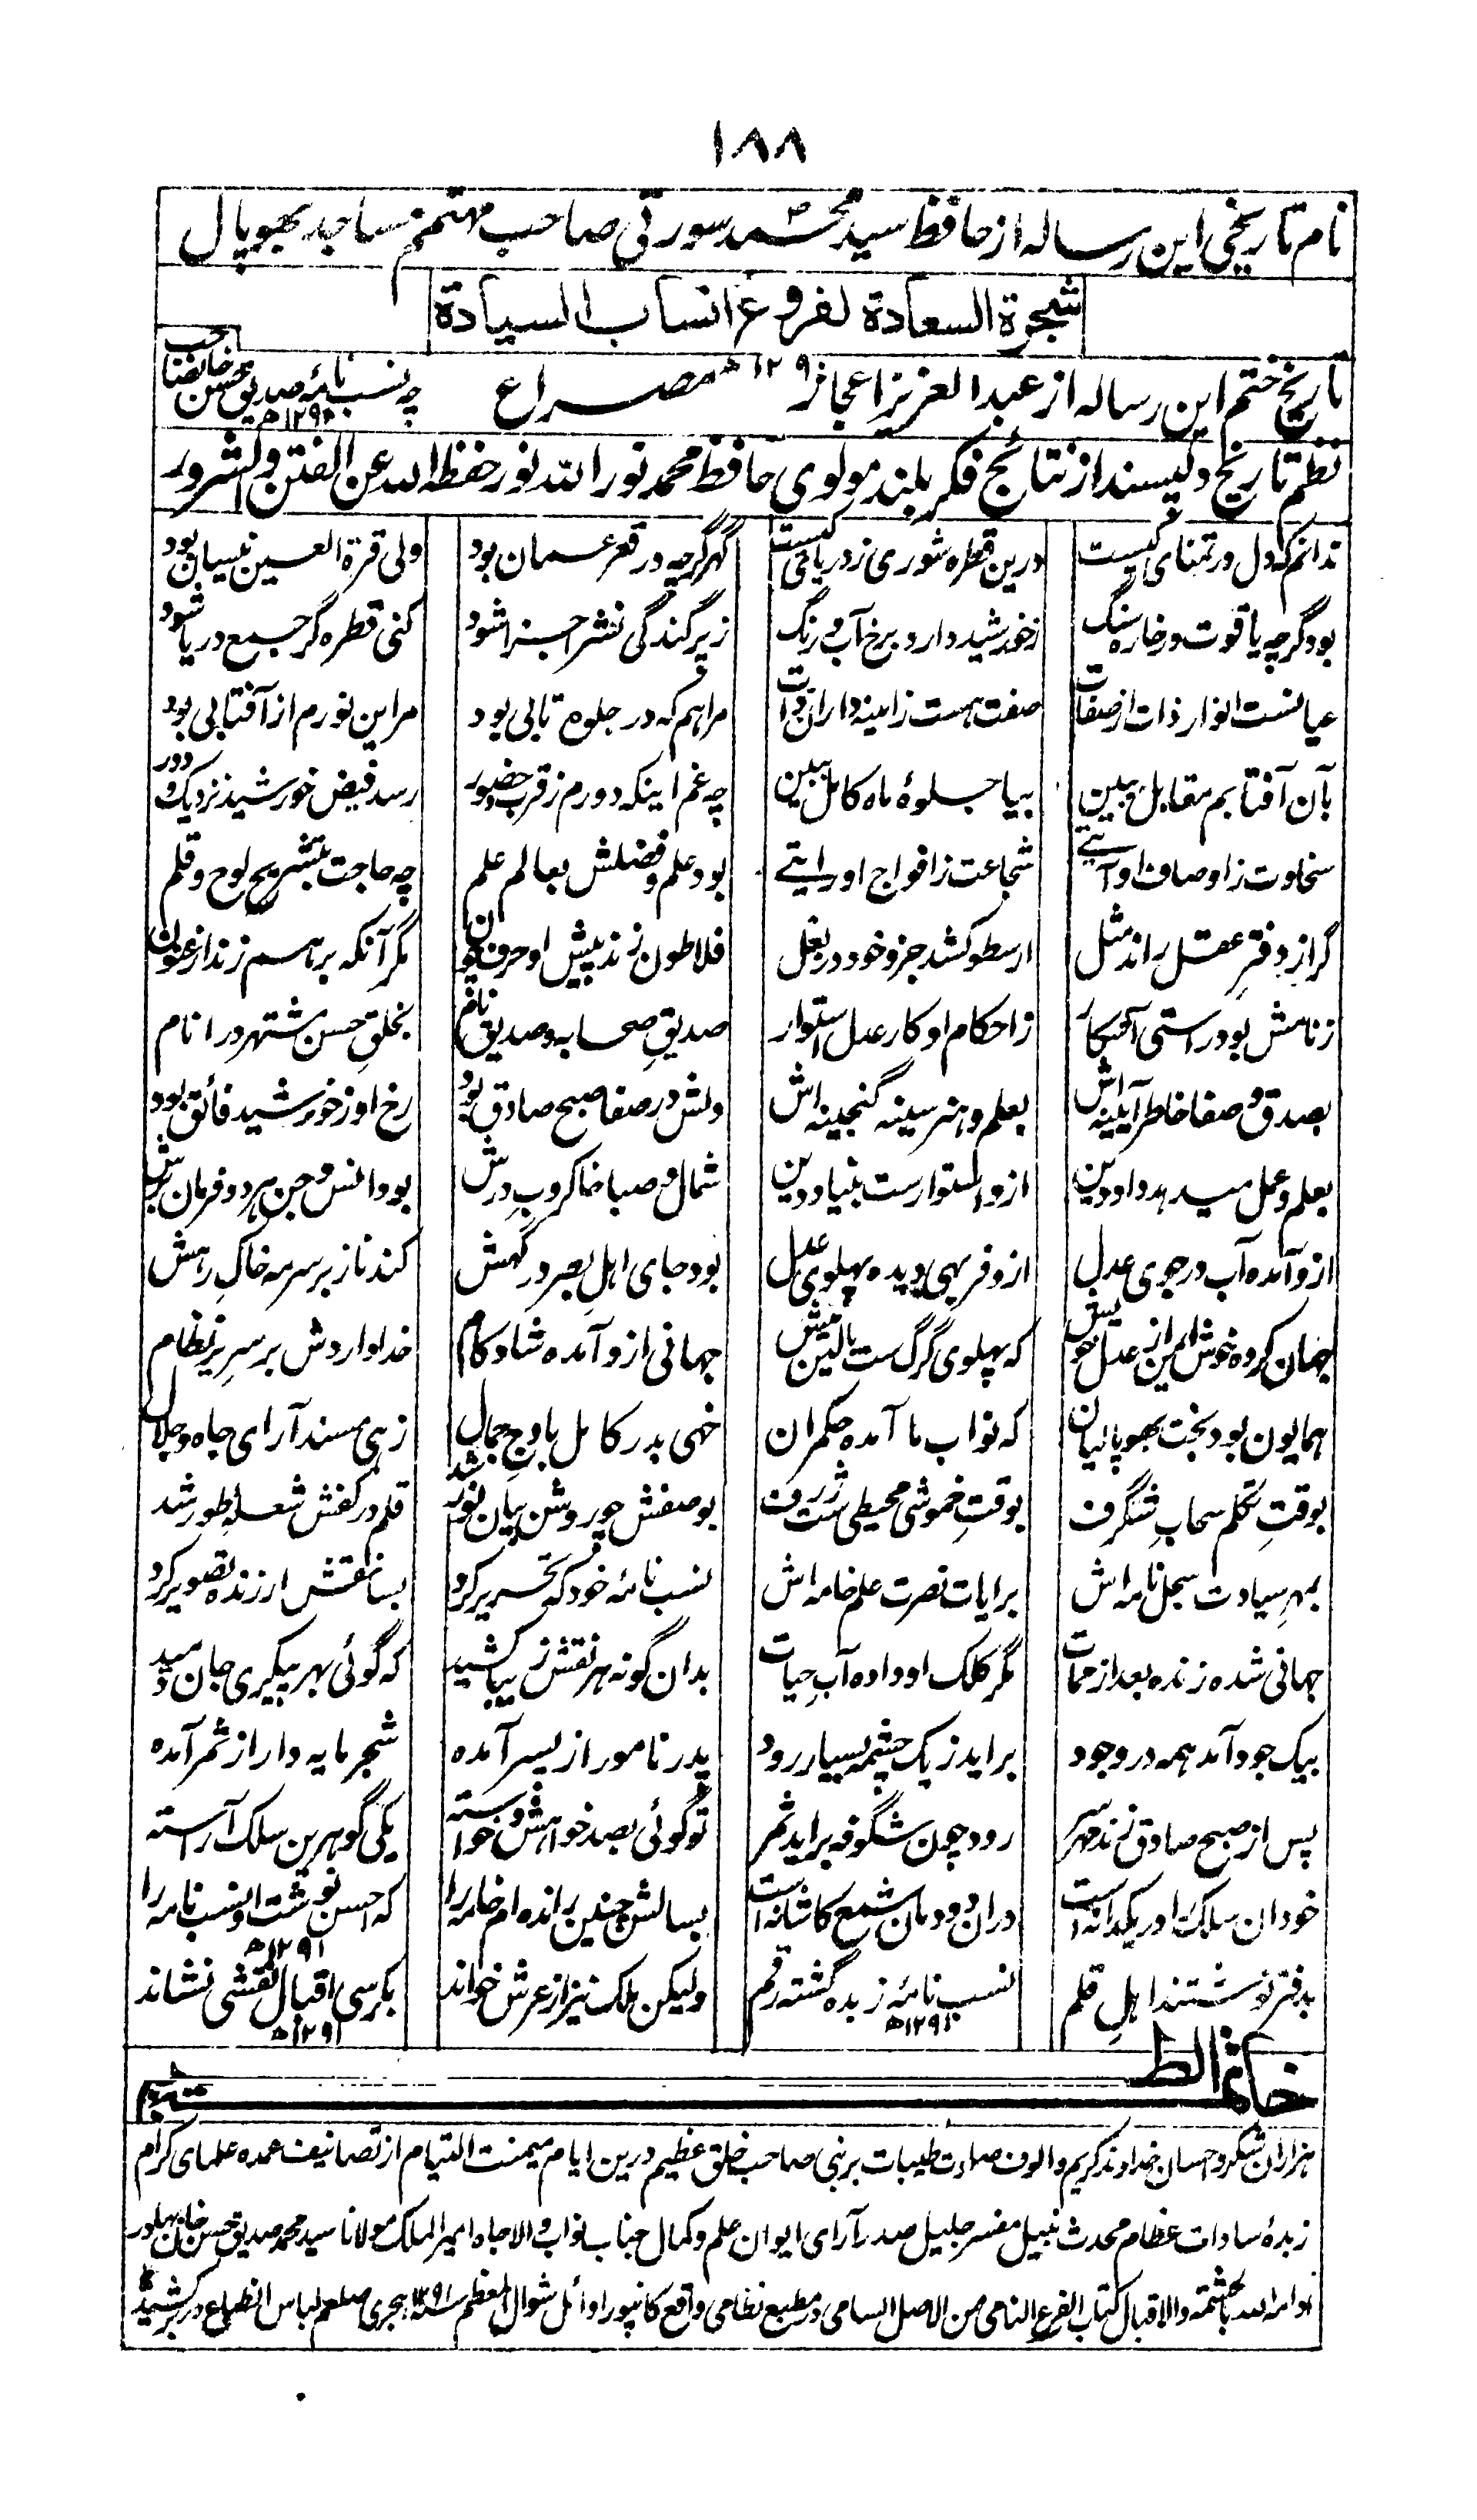 ۱۸۸
نام تاریخی این رساله از حافظ سید محمد سورتی صاحب مهتمم مساجد بهوپال
شجرة السعادة لفروع انساب السيادة
۱۲۹۱ھ
تاریخ ختم این رساله از عبد العزیز اعجاز مصراع چه نسب نامۀ صدیق حسن خانصاحب
۱۲۹۱ھ
نظم تاریخ دلپسند از نتائج فکر بلند مولوی حافظ محمد نور الله نور حفظه الله عن الفتن والشرور
ندانم که دل در تمنای کیست درین قطره شوری ز دریای کیست گهر گرچه در قعر عمان بود ولی قرة العین نیسان بود
بود گرچه یاقوت در خاره سنگ ز خورشید دارد برخ آب و رنگ ز پرگندگی نشر اجزا شود کنی قطره گر جمع دریا شود
عیانست انوار ذات از صفات صفت هست ز آئینه داران ذات مرا هم که در جلوه تابی بود مر این نورم از آفتابی بود
بآن آفتابم مقابل ببین بیا جلوۀ ماه کامل ببین چه غم اینکه دورم ز قرب حضور رسد فیض خورشید نزدیک و دور
سخاوت ز اوصاف او آیتے شجاعت ز افواج او رایتے بود علم و فضلش بعالم علم چه حاجت بتشریح لوح و قلم
گر از دفترِ عقل راند مثل ارسطو کشد جزو خود در بغل فلاطون زند پیش او حرف چون مگر آنکه برهم زند ارغنون
ز نامش بود راستی آشکار ز احکام او کار عدل استوار صدیقِ صحابه و صدیق نام بخلقِ حسن مشتهر در انام
بصدق و صفا خاطر آیینه اش بعلم و هنر سینه گنجینه اش دلش در صفا صبح صادق بود رخ او ز خورشید فائق بود
بعلم و عمل میدهد داد دین ازو استوارست بنیاد دین شمال و صبا خاکروبِ درش بود انس و جن هر دو فرمان برش
ازو آمده آب در جوی عدل ازو فربهی دیده پهلوی عدل بود جای اهلِ بصر درگهش کند ناز بر سرمه خاکِ رهش
جهان کرده خوش ایمن از عدل خویش که پهلوی گرگ ست بالین میش جهانی ازو آمده شادکام خدا داردش بر سریرِ نظام
همایون بود بخت بهوپالیان که نواب ما آمده حکمران خهی بدر کامل باوجِ جمال زهی مسند آرای جاه و جلال
بوقتِ تکلم سحابِ شگرف بوقتِ خموشی محیطی ست ژرف بوصفش چو روشن بیان نور شد قلم در کفش شعلۀ طور شد
بمهرِ سیادت سجل نامه اش برایات نصرت علم خامه اش نسب نامۀ خود که تحریر کرد بسا نقش ارزنده تصویر کرد
جهانی شده زنده بعد از ممات مگر کلک او داده آبِ حیات بدان گونه هر نقش زیبا کشید که گوئی بهر پیکری جان دمید
بیک جود آمد همه در وجود براید ز یک چشمه بسیار رود پدر نامور از پسر آمده شجر مایه دار از ثمر آمده
پس از صبح صادق زند مهر سر رود چون شگوفه براید ثمر تو گوئی بصد خواهش و خواسته یکی گوهرین سلک آراسته
خود آن سلک را در یکدانه است دران دودمان شمع کاشانه است بسالش چنین رانده ام خامه را که احسن نوشت او نسب نامه را
۱۲۹۱ھ
بدفتر نوشتند اهلِ قلم نسب نامۀ زبده گشته رقم ولیکن ملک نیز از عرش خواند بکرسی اقبال نقشی نشاند
۱۲۹۱ھ ۱۲۹۱ھ
خاتم الطبع
هزاران شکر و احسان خداوند کریم و الوف صلوات طیبات بر نبی صاحب خلق عظیم درین ایام میمنت التیام از تصانیف عمده علمای کرام
زبدۀ سادات عظام محدث نبیل مفسر جلیل صدر آرای ایوان علم و کمال جناب نواب والاجاه امیر الملک مولانا سید محمد صدیق حسن خان بهادر
ادامه الله بالحشمة والاقبال کتاب الفرع النامی من الاصل السامی در مطبع نظامی واقع کانپور اوائل شوال المعظم سنه ۱۲۹۱ هجری صلعم لباس انطباع در بر کشید